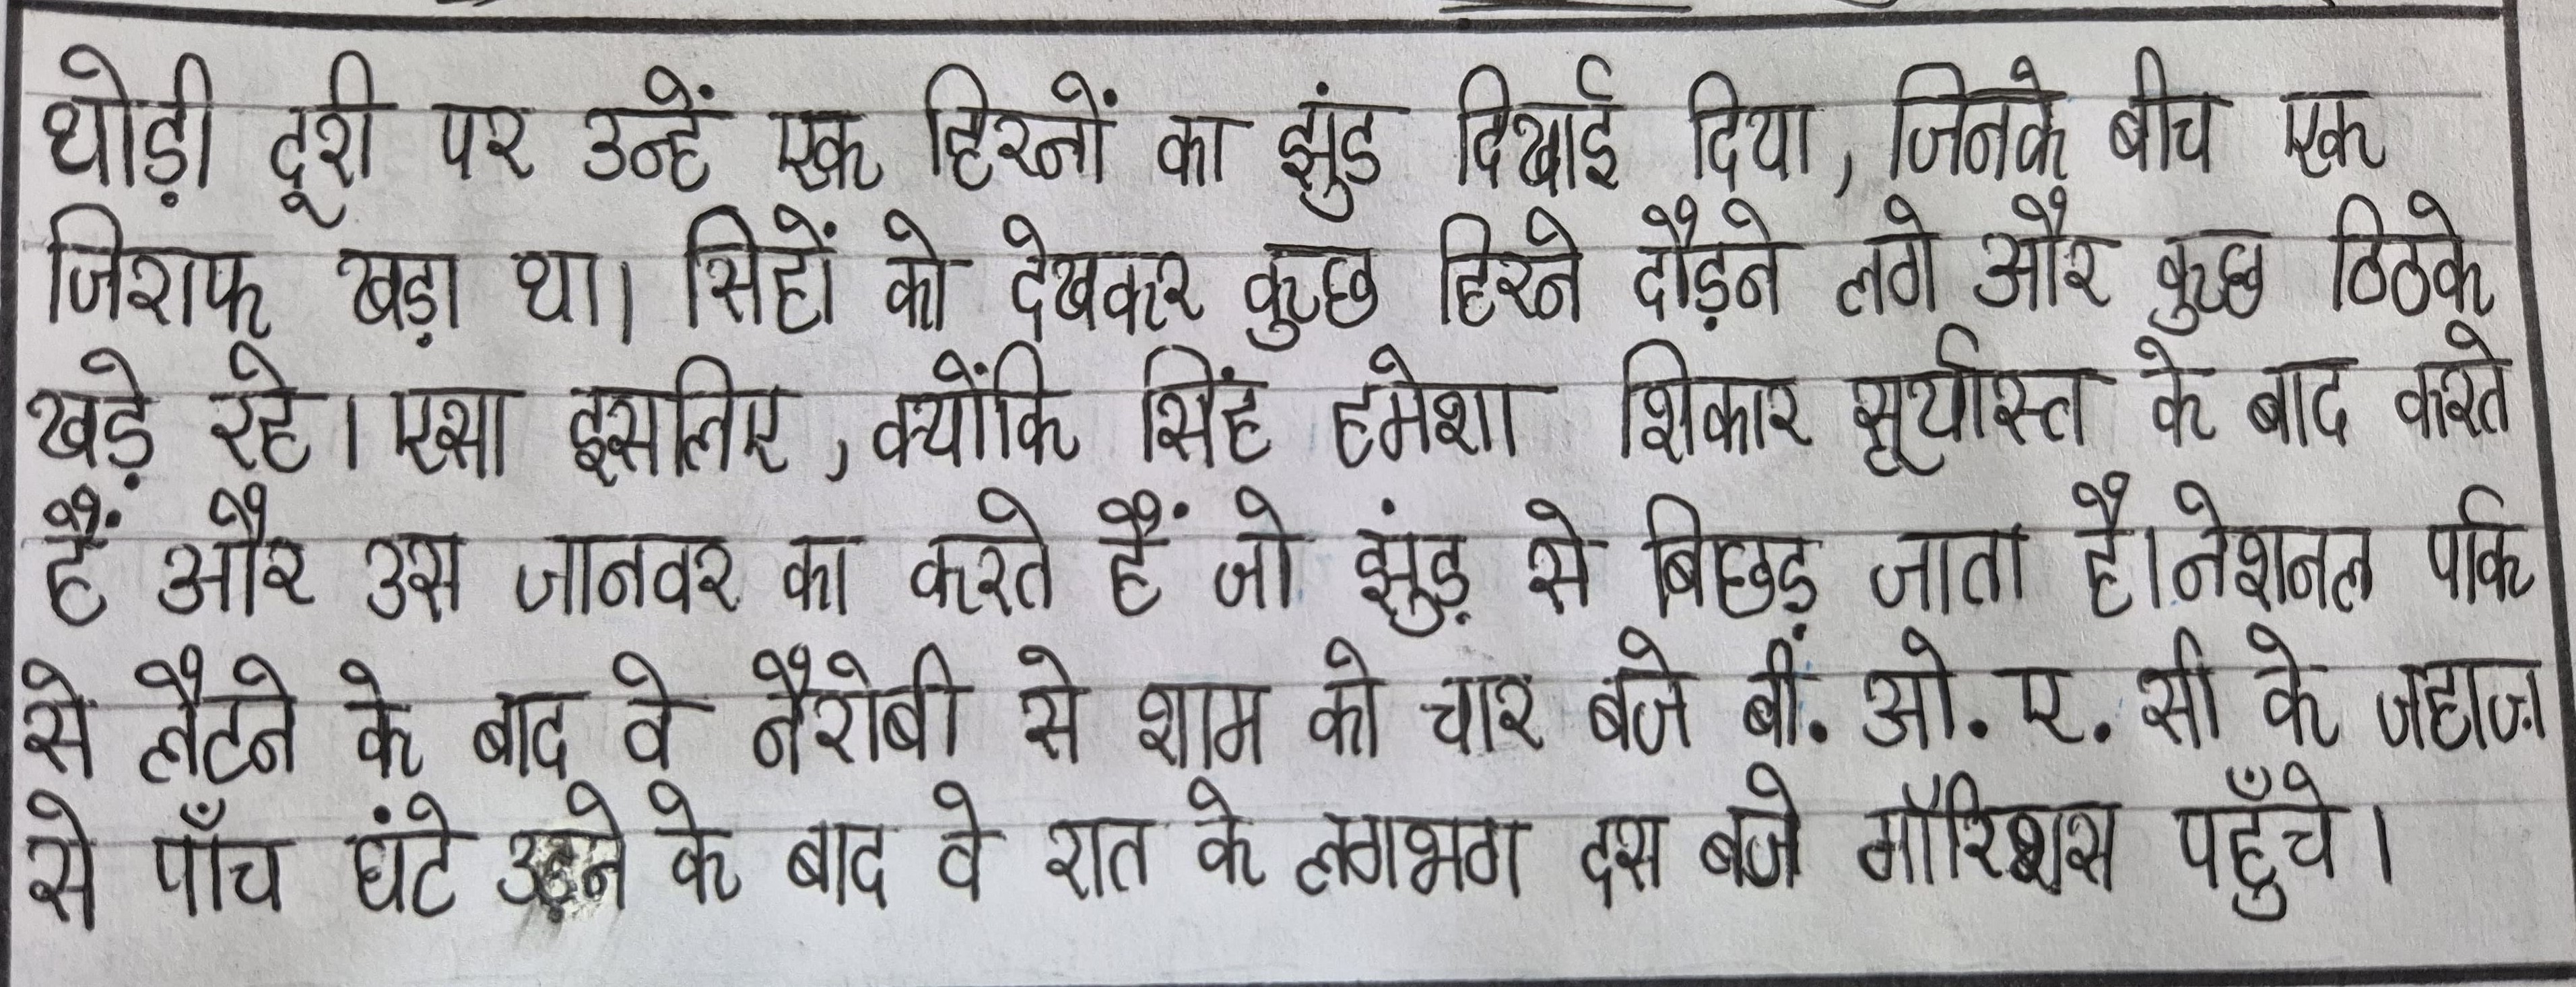 थोड़ी दूरी पर उन्हें एक हिरनों का झुंड दिखाई दिया, जिनके बीच एक
जिराफ खड़ा था। सिहों को देखकर कुछ हिरने दौड़ने लगे और कुछ ठिठके
खड़े रहे। एसा इसलिए, क्योंकि सिंह हमेशा शिकार सूर्यास्त के बाद करते
हैं और उस जानवर का करते हैं जो झुंड़ से बिछड़ जाता है। नेशनल पर्क
से लैटने के बाद वे नैरोबी से शाम को चार बजे बी. ओ. ए. सी के जहाज़
से पाँच घंटे उड़ने के बाद वे रात के लगभग दस बजे मॉरिशस पहुँचे।